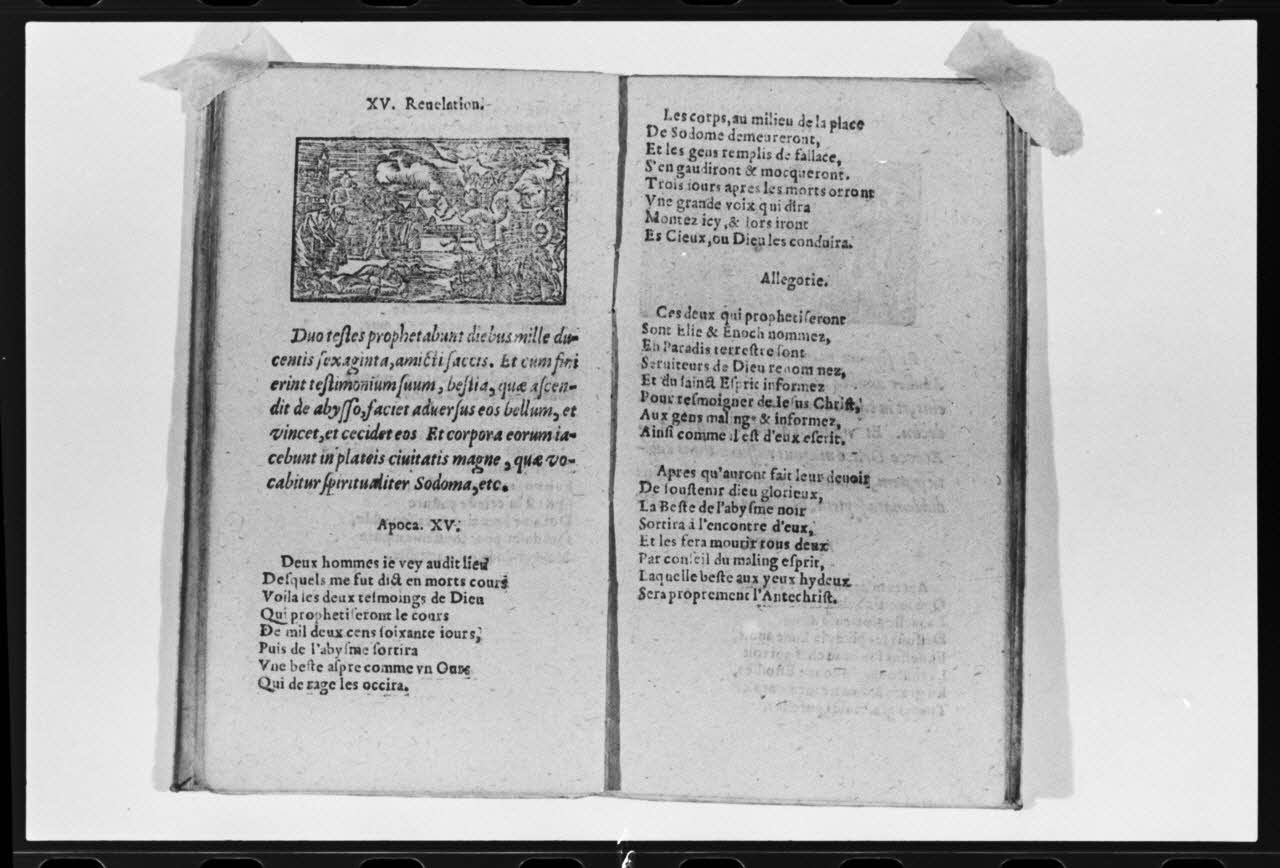 XV. Reuelation.
Duo testes prophetabunt diebus mille du-
centis sexaginta, amicti saccis. Et cum fini
erint testimonium suum, bestia, quæ ascen-
dit de abysso, faciet adversus eos bellum, et
vincet, et cecidet eos Et corpora eorum ia-
cebunt in plateis ciuitatis magne, quæ vo-
cabitur spiritualiter Sodoma, etc.
Apoca. XV.
Deux hommes ie vey audit lieu
Desquels me fut dict en morts cours
Voila les deux tesmoings de Dieu
Qui prophetiseront le cours
De mil deux cens soixante iours,
Puis de l'abysme sortira
Vne beste aspre comme vn Ours
Qui de rage les occira.
Les corps, au milieu de la place
De Sodome demeureront,
Et les gens remplis de fallace,
S'en gaudiront & mocqueront.
Trois iours apres les morts orront
Vne grande voix qui dira
Montez icy, & lors iront
Es Cieux, ou Dieu les conduira.
Allegorie.
Ces deux qui prophetiseront
Sont Elie & Enoch nommez,
En Paradis terrestre sont
Seruiteurs de Dieu renom nez,
Et du sainct Esprit informez
Pour tesmoigner de Iesus Christ,
Aux gens malings & informez,
Ainsi comme il est d'eux escrit.
Apres qu'auront fait leur deuoir
De soustenir dieu glorieux,
La Beste de l'abysme noir
Sortira à l'encontre d'eux,
Et les fera mourir tous deux
Par conseil du maling esprit,
Laquelle beste aux yeux hydeux
Sera proprement l'Antechrist.